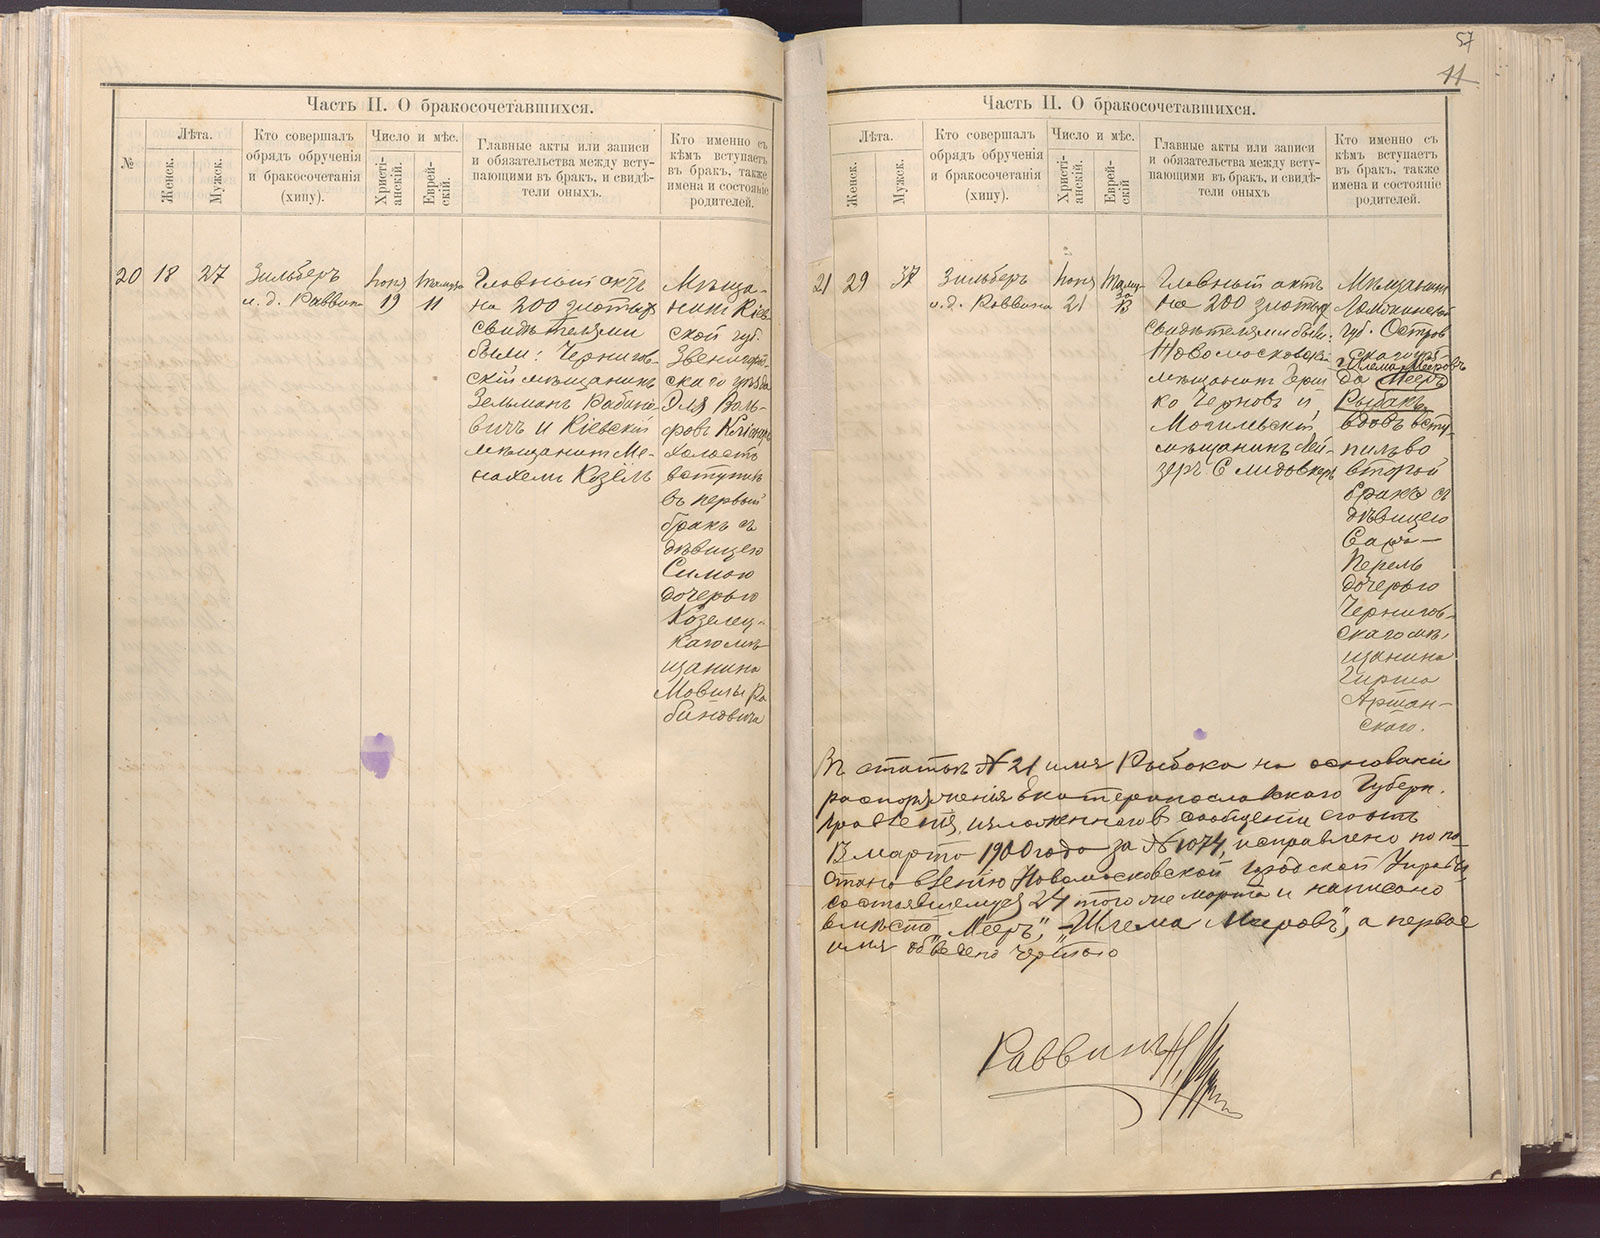 Часть II. О бракосочетавшихся.
№
Лѣта.
Женск.
Мужск.
Кто совершалъ
обрядъ обрученія
и бракосочетанія
(хипу).
Число и мѣс.
Христі-
анскій.
Еврей-
скій.
Главные акты или записи
и обязательства между всту-
пающими въ бракъ, и свидѣ-
тели оныхъ.
Кто именно съ
кѣмъ вступаетъ
въ бракъ, также
имена и состояніе
родителей.
20
18
27
Зильберъ
и. д. Раввин
Іюня
19
11
Главный актъ
на 200 злотыхъ
свидѣтелями
были: Чернигов-
скій мѣщанинъ
Зельманъ Рабино-
вичъ и Кіевскій
мѣщанинъ Ме-
нахемъ Козёлъ
Мѣща-
нинъ Кіев-
ской губ.
Звенигород-
скаго уѣзда
Эля Воль-
фовъ
холостъ
вступилъ
въ первый
бракъ съ
дѣвицею
Симою
дочерью
Козелец-
каго мѣ-
щанина
Мовши Ра-
биновича
57
11
Часть II. О бракосочетавшихся.
Лѣта.
Женск.
Мужск.
Кто совершалъ
обрядъ обрученія
и бракосочетанія
(хипу).
Число и мѣс.
Христі-
анскій.
Еврей-
скій
Главные акты или записи
и обязательства между всту-
пающими въ бракъ, и свидѣ-
тели оныхъ
Кто именно съ
кѣмъ вступаетъ
въ бракъ, также
имена и состояніе
родителей.
21
29
37
Зильберъ
и. д. Раввина
Іюня
21
Таму-
за
13
Главный актъ
на 200 злотых
свидѣтелями были:
Новомосковскій
мѣщанинъ Герш
ко Черновъ и
Могилевскій
мѣщанинъ Лей-
зеръ
Мѣщанинъ
губ. Остров
скаго уѣз-
Шлема Мееровъ
да Мееръ
Рыбакъ
вдовъ всту-
пилъ во
второй
бракъ съ
дѣвицею
Сара-
Перель
дочерью
Чернигов-
скаго мѣ-
щанина
Гирша
Аршан-
скаго.
Въ статьѣ № 21 имя Рыбака на основаніи
распоряженія Екатеринославскаго Губерн.
Правленія, изложеннаго въ сообщеніи его отъ
13 марта 1900 года за № 1074, исправлено по по-
становленію Новомосковской Городской Управы,
состоявшемуся 24 того же марта и написано
вмѣсто „Мееръ", - „Шлема Мееровъ", а первое
имя обведено чертою
Раввинъ